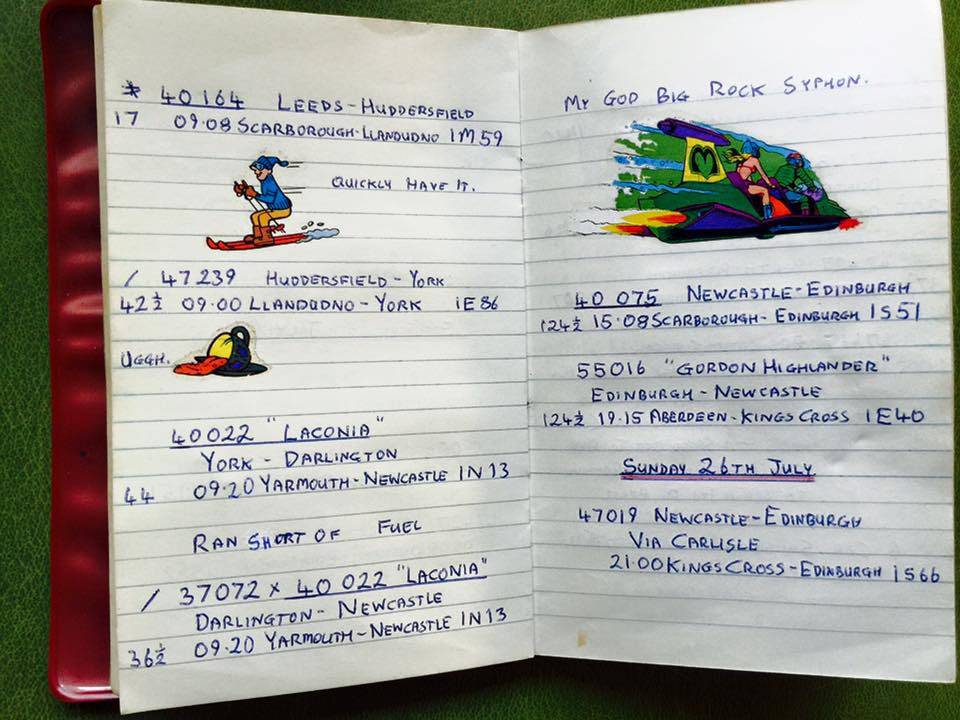 * 40164 LEEDS-HUDDERSFIELD
17 09.08 SCARBOROUGH-LLANDUDNO 1M59
QUICKLY HAVE IT.
/ 47239 HUDDERSFIELD-YORK
42½ 09.00 LLANDUDNO-YORK 1E86
UGGH.
40022 "LACONIA"
YORK-DARLINGTON
44 09.20 YARMOUTH-NEWCASTLE 1N13
RAN SHORT OF FUEL
/ 37072 x 40 022 "LACONIA"
DARLINGTON-NEWCASTLE
36½ 09.20 YARMOUTH-NEWCASTLE 1N13
MY GOD BIG ROCK SYPHON.
M
40 075 NEWCASTLE-EDINBURGH
124½ 15.08 SCARBOROUGH-EDINBURGH 1S51
55016 "GORDON HIGHLANDER"
EDINBURGH-NEWCASTLE
124½ 19.15 ABERDEEN-KINGS CROSS 1E40
SUNDAY 26TH JULY
47019 NEWCASTLE-EDINBURGH
VIA CARLISLE
21.00 KINGS CROSS-EDINBURGH 1S66